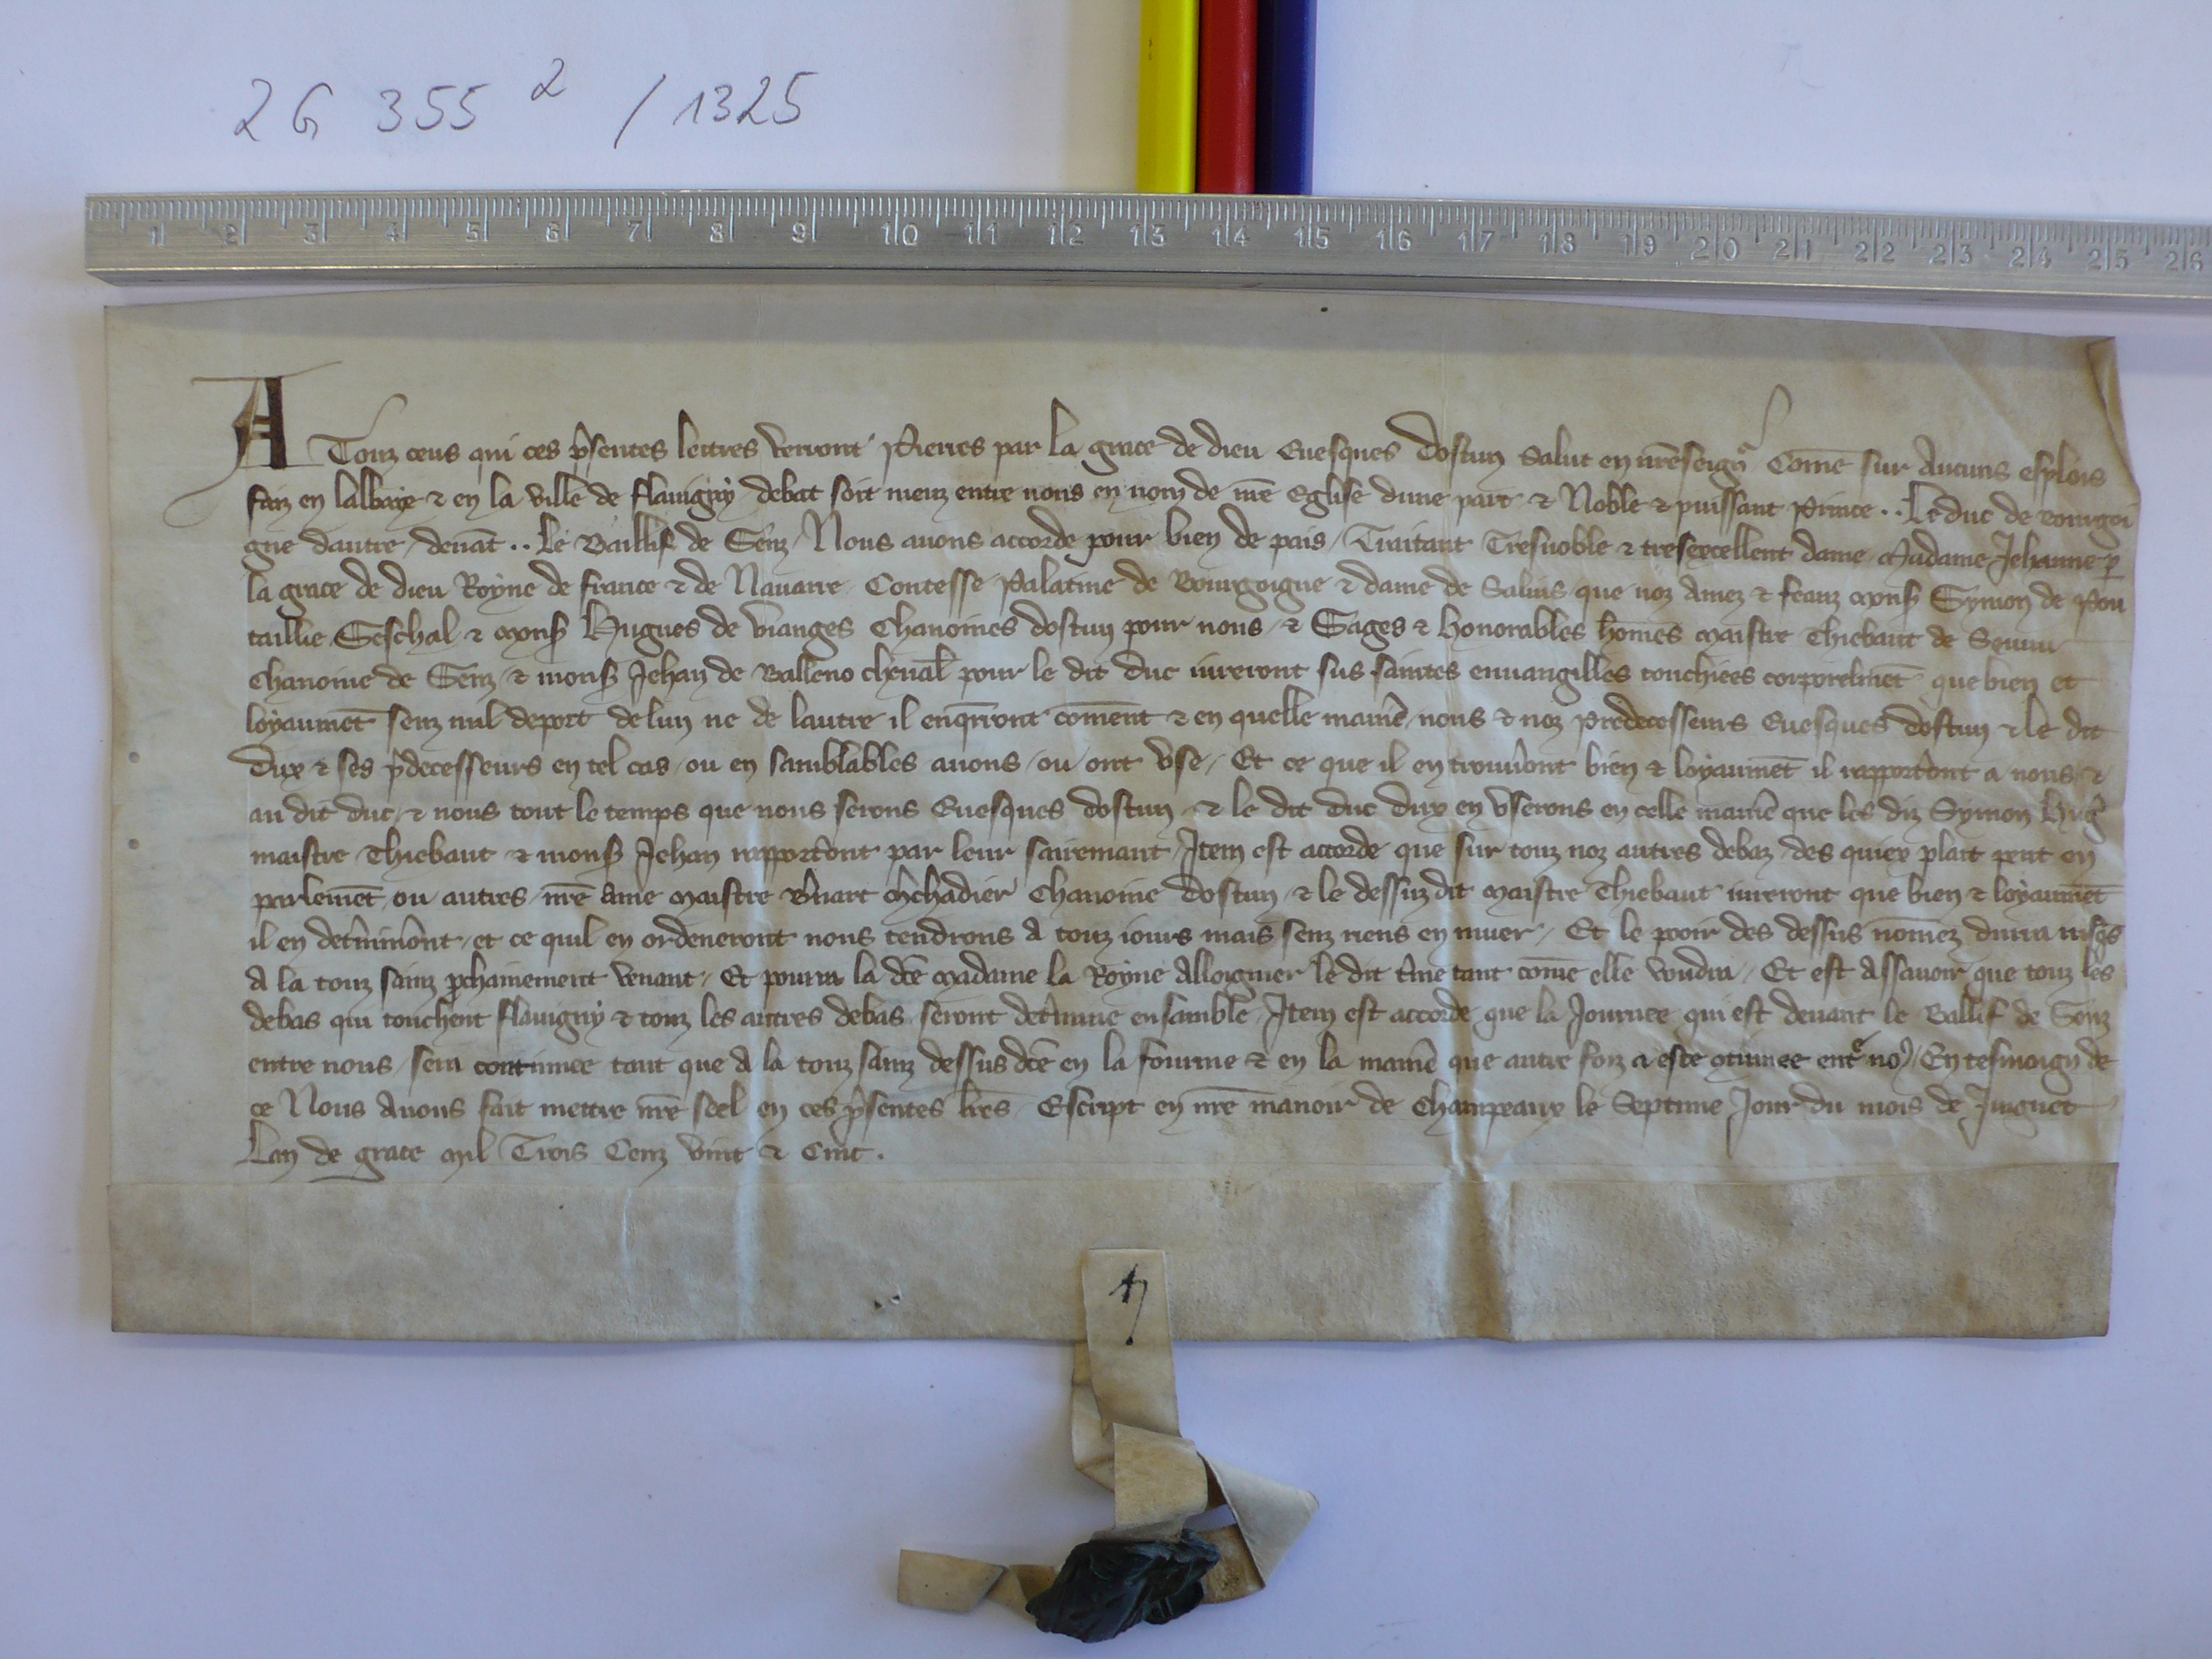 2 G 355 2 / 1325
1 2 3 4 5 6 7 8 9 10 11 12 13 14 15 16 17 18 19 20 21 22 23 24 25 26
A Touz ceus qui ces p̄sentes lettres verront Pierres par la grace de dieu Euesques dostun Salut en nr̄eseignr Com̄e sur Aucuns esplois
faiz en labbaye & en la ville de flauigny debat soit meuz entre nous en nom de nr̄e Eglise dune part & Noble & puissant Prince .. Le duc de bourgoi
gne dautre deuāt .. le Baillif de Senz Nous auons accorde pour bien de pais Traitant Tresnoble & tresexcellent dame Madame Jehanne p̱
la grace de dieu Royne de france & de Nauarre Contesse Palatine de Bourgoigne & dame de Salins que noz Amez & feauz mons̄ Symon de Pon
taillie Seschal & mons̄ Hugues de vianges Chanoines dostun pour nous & Sages & honorables hom̄es Maistre Thiebaut de Semur
Chanoine de Senz & mons̄ Jehan de Balleno cheual̄ pour le dit duc iureront sus saintes euuangilles touchiees corporelmēt que bien et
loyaumēt senz nul deport de lun ne de lautre il enq̄rront com̄ent & en quelle manīe nous & noz predecesseurs Euesques dostun & le dit
dux & ses p̄decesseurs en tel cas ou en samblables auons ou ont vse Et ce que il en trouūont bien & loyaumēt il rapport̄ont a nous &
au dit duc & nous tout le temps que nous serons Euesques dostun & le dit duc dux en vserons en celle manīe que les diz Symon Huḡ
maistre Thiebaut & mons̄ Jehan rapport̄ont par leur sairemant Item est accorde que sur touz noz autres debaz des quiex plait pent en
parlemēt ou autres nr̄e ame Maistre B̄nart Chanoine dostun & le dessuz dit Maistre Thiebaut iureront que bien & loyaumēt
il en det̄min̄ont et ce quil en ordeneront nous tendrons a touz iours mais senz riens en muer Et le pooir des dessus nom̄ez durra iusq̄s
A la touz sainz p̱chainement venant Et pourra la dc̄e Madame la Royne Alloignier le dit t̄me tant com̄e elle voudra Et est Assauoir que touz les
debas qui touchent flauigny & touz les autres debas seront det̄mine ensamble Item est accorde que la Journee qui est deuant le Ballif de Senz
entre nous sera continuee tant que A la touz sainz dessus dc̄e en la fourme & en la manīe que autre foiz a este 9tinuee entr̄ no9 En tesmoign de
ce Nous Auons fait mettre nr̄e seel en ces p̄sentes lr̄es Escript en nr̄e manoir de Champeaux le Septime Jour du mois de Juignet
Lan de grace Mil Trois Cenz vint & Cinc .